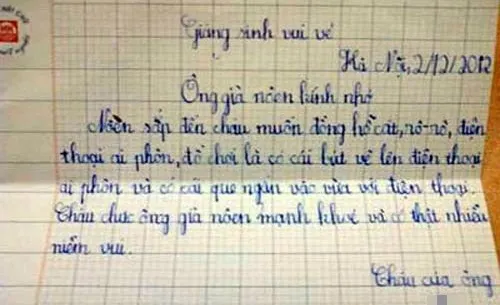 Giáng sinh vui vẻ
Hà Nội, 2/12/2012
Ông già nôen kính nhớ
Nôen sắp đến cháu muốn đồng hồ cát, rô-rô, điện
thoại ai phôn, đồ chơi là có cái bút vẽ lên điện thoại
ai phôn và có cái que ngắn vào vừa với điện thoại.
Cháu chúc ông già nôen mạnh khoẻ và có thật nhiều
niềm vui.
Cháu của ông